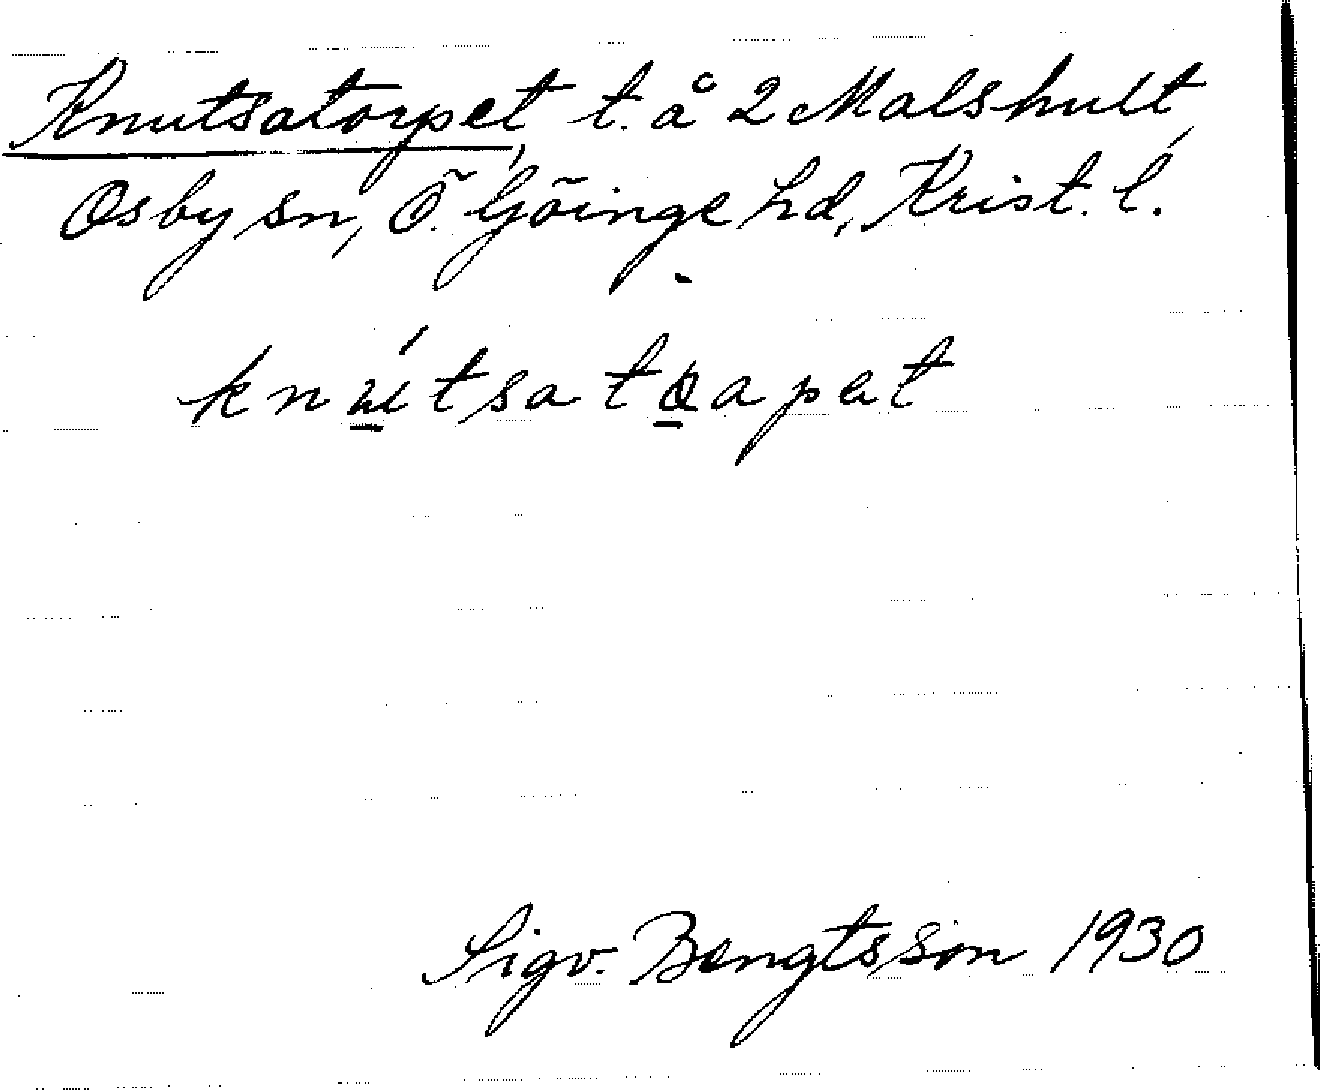 Knutsatorpet, t. å 2 Malshult,
Osby sn, Ö. Göinge hd, Krist. l.
knu̲ítsato̲apet
Sigv. Bengtsson 1930